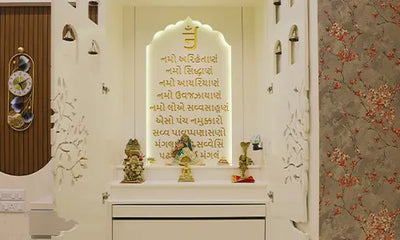 ૐ
નમો અરિહંતાણં
નમો સિદ્ધાણં
નમો આયરિયાણં
નમો ઉવજ્ઝાયાણં
નમો લોએ સવ્વસાહૂણં
એસો પંચ નમુક્કારો
સવ્વ પાવપ્પણાસણો
મંગલાણં સવ્વેસિં
મંગલં